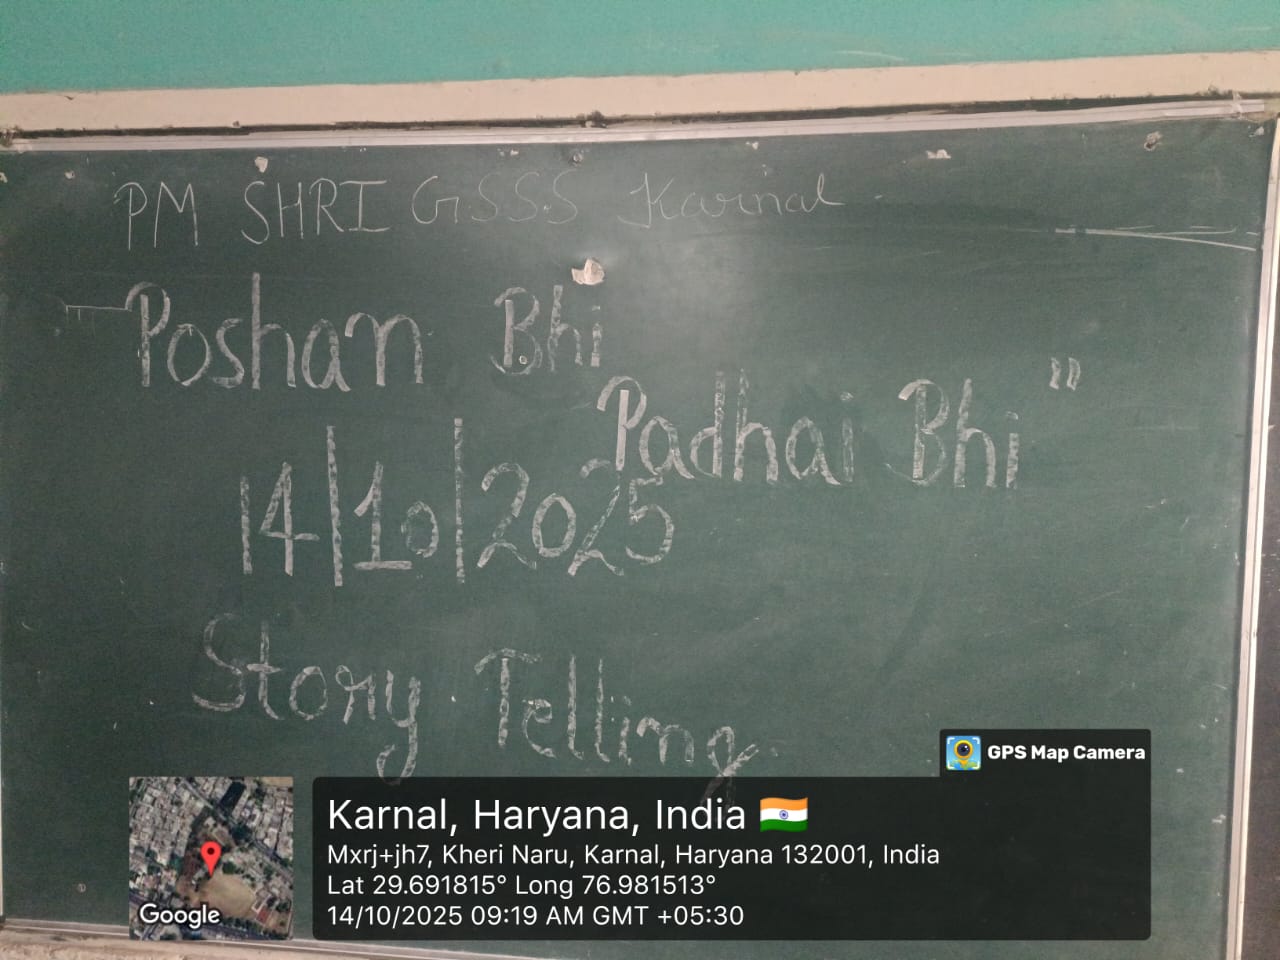 PM SHRI GSSS Karnal
Poshan Bhi
Padhai Bhi "
14/10/2025
Story Telling
GPS Map Camera
Karnal, Haryana, India
Mxrj+jh7, Kheri Naru, Karnal, Haryana 132001, India
Lat 29.691815° Long 76.981513°
14/10/2025 09:19 AM GMT +05:30
Google